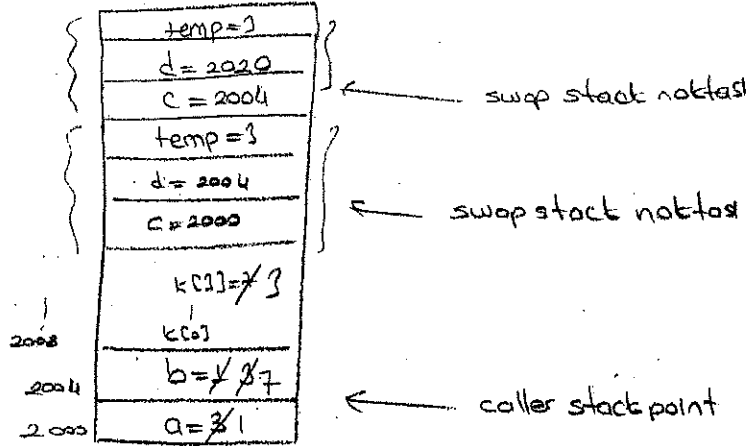 temp=3
d=2020
c=2004
swap stack noktası
temp=3
d=2004
c=2000
swap stack noktası
k[3]=7 3
2008
k[0]
2004
b=1 3 7
caller stack point
2000
a=3 1